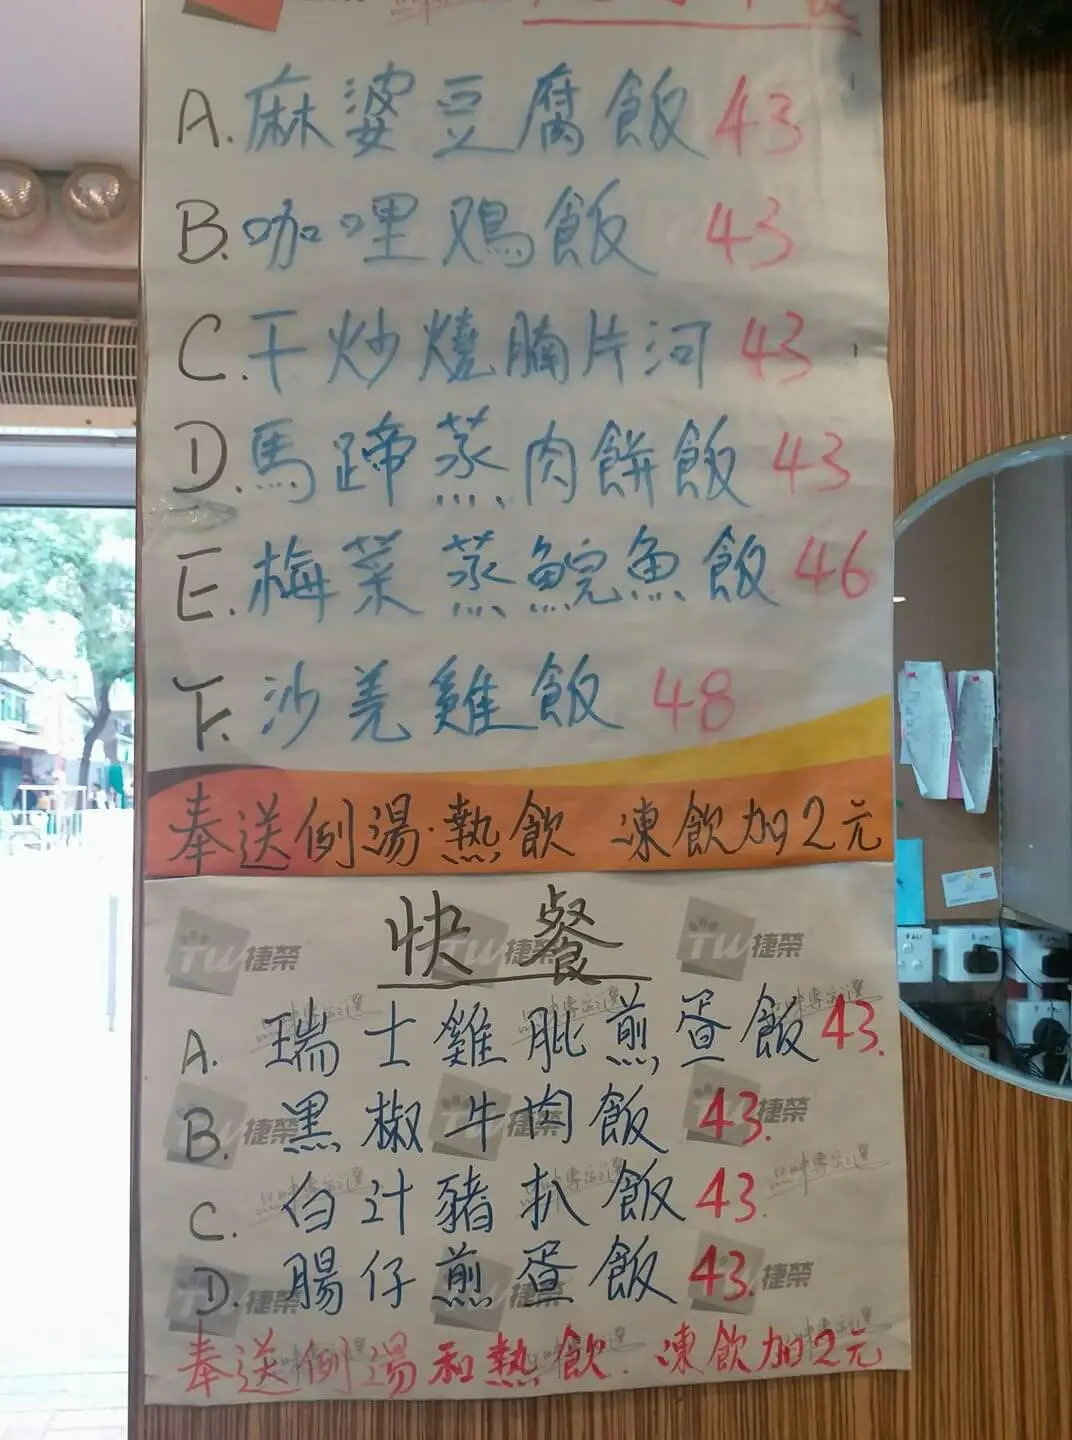 A. 麻婆豆腐飯 43
B. 咖哩鸡飯 43
C. 干炒燒腩片河 43
D. 馬蹄蒸肉餅飯 43
E. 梅菜蒸鯇魚飯 46
F. 沙羌雞飯 48
奉送例湯·熱飲 凍飲加2元
快餐
TW捷榮 TW捷榮 TW捷榮
A. 瑞士雞肶煎蛋飯 43.
B. 黑椒牛肉飯 43.
TW捷榮 TW捷榮 TW捷榮
C. 白汁豬扒飯 43.
D. 腸仔煎蛋飯 43.
TW捷榮 TW捷榮 TW捷榮
奉送例湯和熱飲. 凍飲加2元